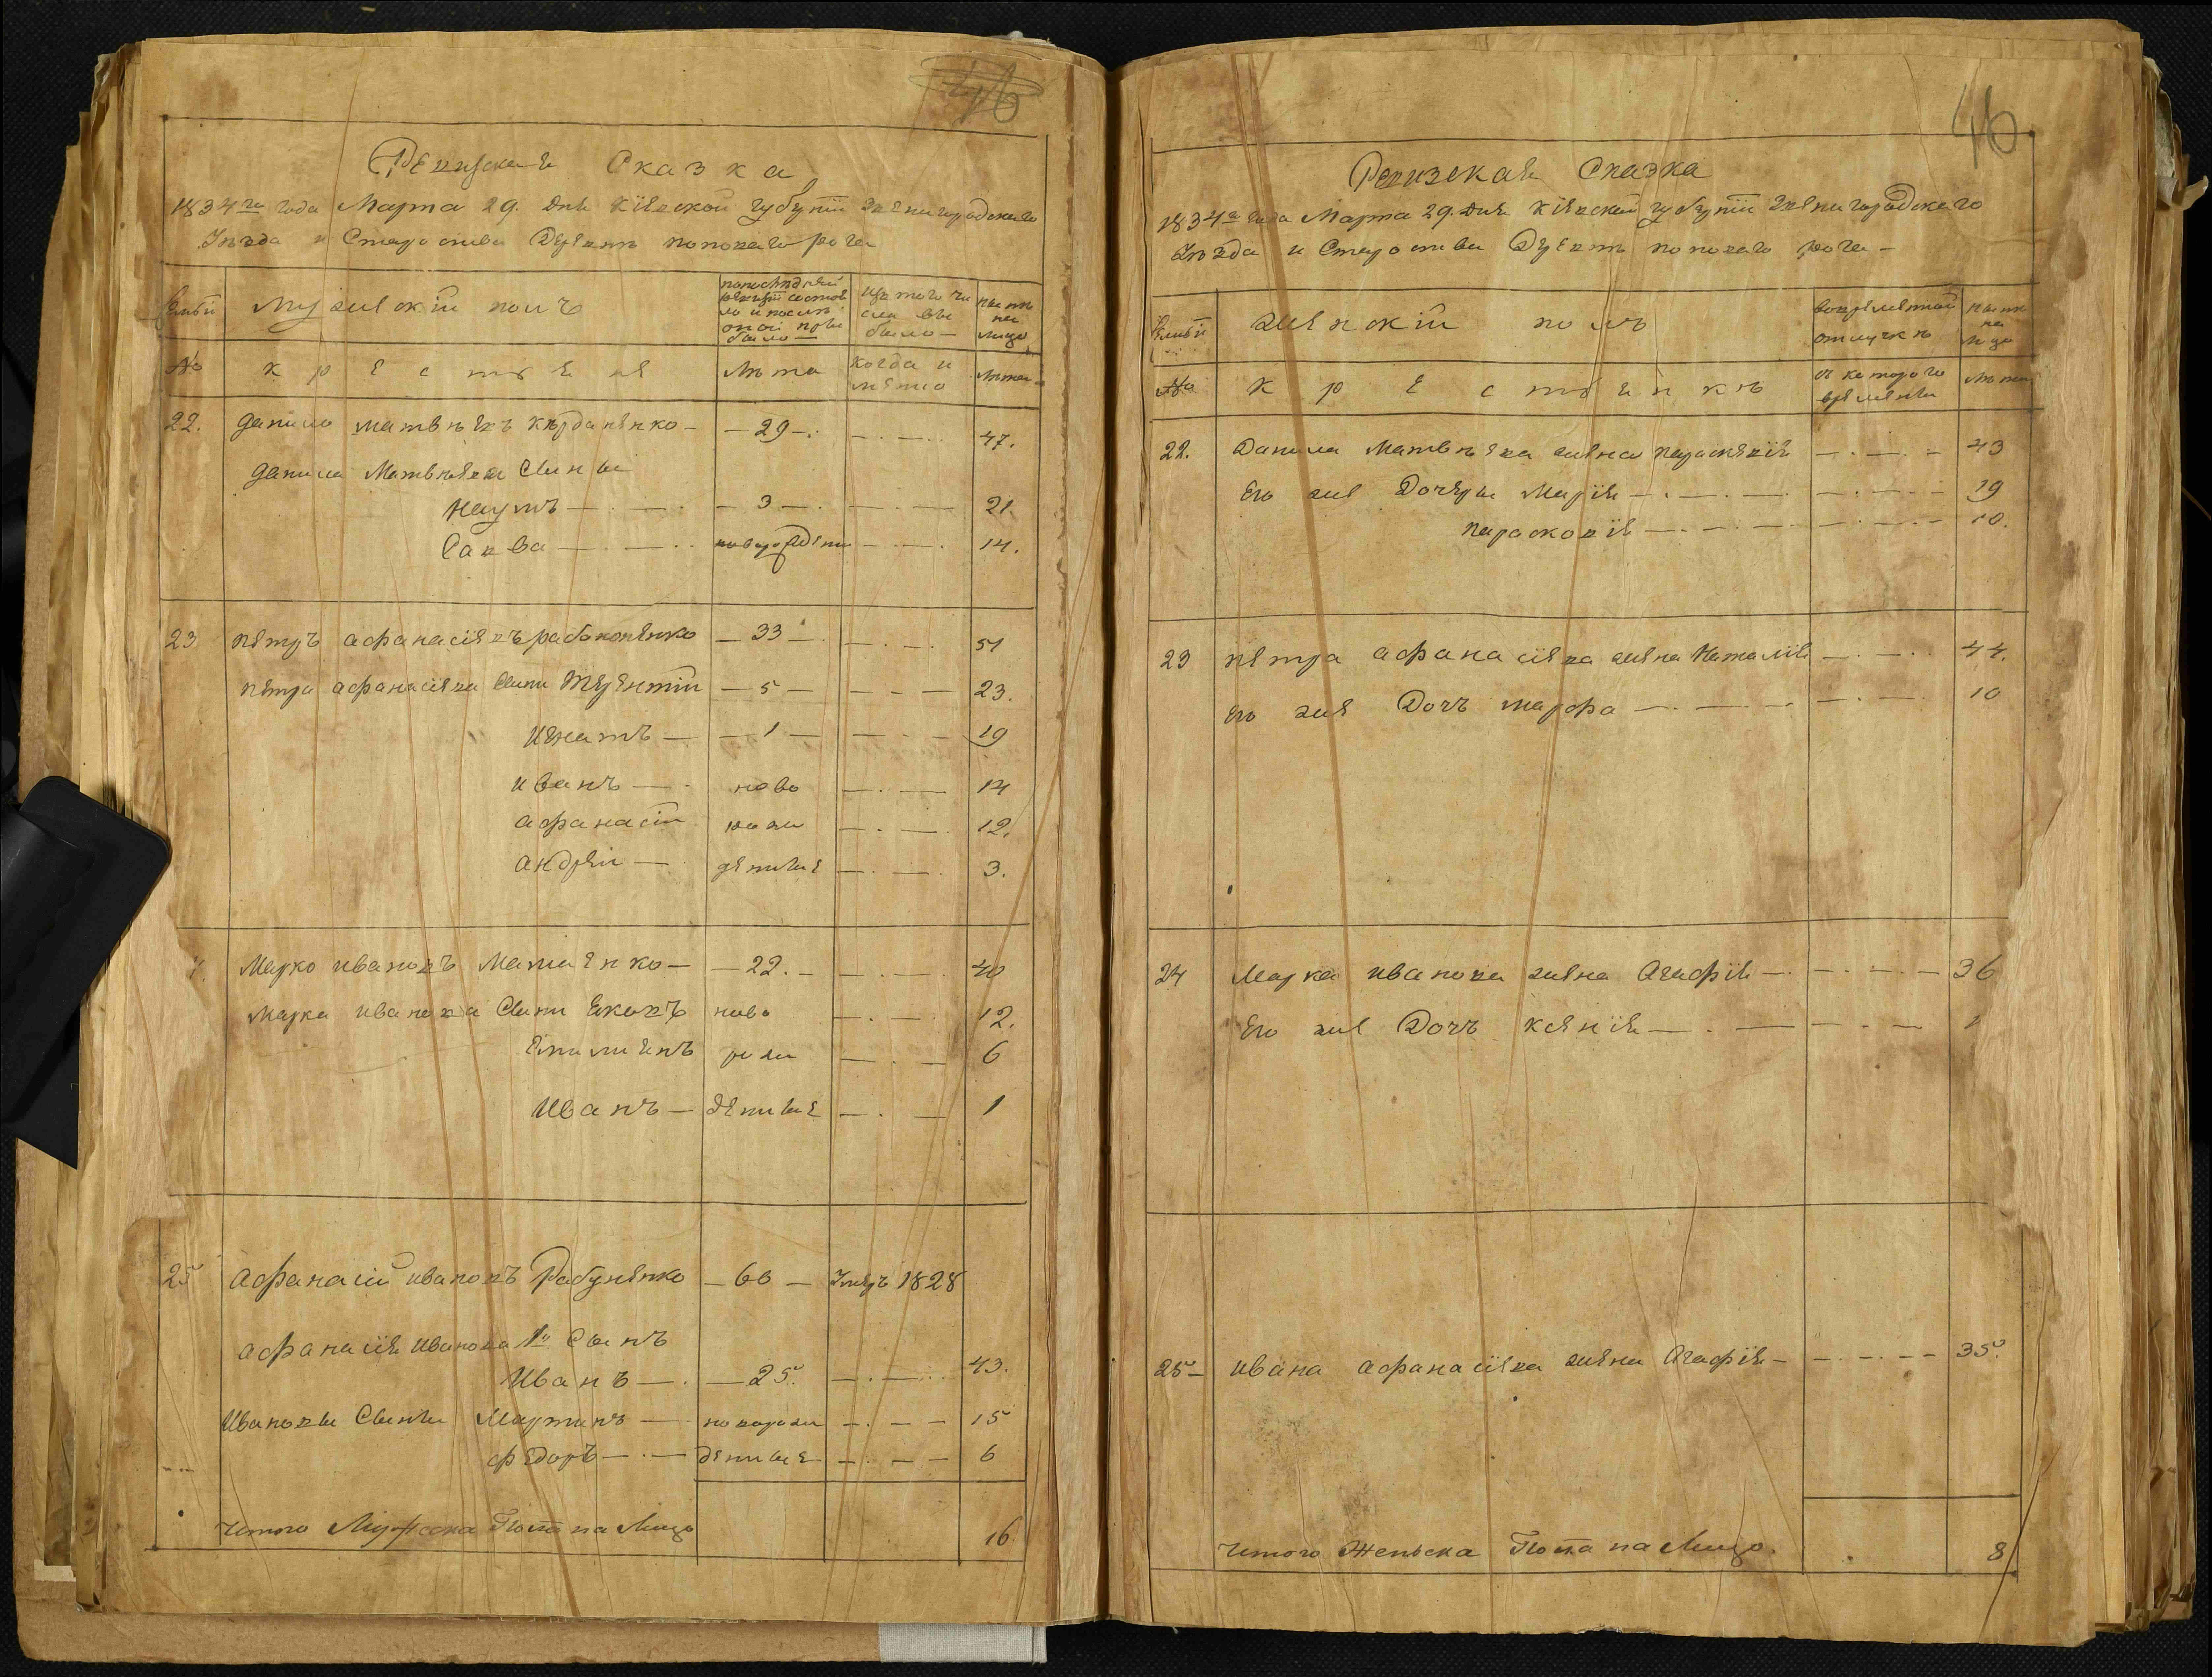 46
Ревизская Сказка
1834го года Марта 29. дня Кіевской губерніи Звенигородскаго
Уезда и Староства Деревнѣ поповаго рога
Семьи
Мужескій полъ
по последней ревизіи состояло и послѣ оной прибыло
изъ того числа выбыло
нынѣ на лицо
№
крестьяне
Лѣта
когда и
лѣта
22. Данило матвѣевъ — 29 — 47.
Данила Матвѣева Сыны
Наумъ — 3 — 21.
Савва — новорожден 14.
23 петръ афанасіевъ — 33 — 51
петра афанасіева Сыны Терентій — 5 — 23.
Игнатъ — 1 — 19
иванъ — ново 14
афанасій рож 12.
андрей — денные 3.
Марко ивановъ — 22. — 40
Марка иванова Сыны Яковъ ново 12.
Емилиянъ рож 6
Иванъ — денные 1
25 Афанасій ивановъ — 60 — Умеръ 1828
афанасія иванова 1й Сынъ
Иванъ — 25. 43.
Ивановы Сыны Мартинъ — новорож 15
федоръ — денные 6
Итого Мужеска Пола на Лицо 16
46
Ревизская Сказка
1834го года Марта 29. дня Кіевской губерніи Звенигородскаго
Уезда и Староства Деревнѣ поповаго рога —
Семьи
женскій полъ
во временной отлучкѣ
нынѣ на лицо
№
крестьянкѣ
съ котораго времени
лѣта
22. Данила Матвѣева жена Параскевія 43
Его же Дочеры Марія 19
параскевія 10.
23 петра афанасіева жена Наталія 44.
Его же Дочъ марфа 10
24 Марка иванова жена Агафія 36
Его же Дочъ ксенія 1
25 — ивана афанасіева жена Агафія — 35.
Итого Женска Пола на Лицо. 8